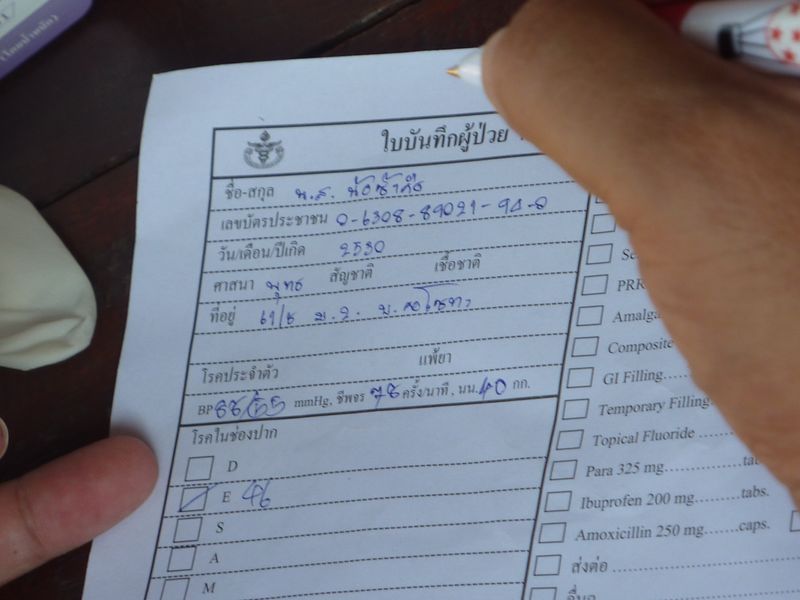 (โดยน้ำหนัก)
ใบบันทึกผู้ป่วย
ชื่อ-สกุล น.ส.
เลขบัตรประชาชน 0-6308-89021-94-0
วัน/เดือน/ปีเกิด 2530
ศาสนา พุทธ สัญชาติ เชื้อชาติ
ที่อยู่
โรคประจำตัว แพ้ยา
BP 88/55 mmHg, ชีพจร 78 ครั้ง/นาที, นน. 40 กก.
โรคในช่องปาก
D
E 46
S
A
M
Se
PRR
Amalga
Composite
GI Filling
Temporary Filling
Topical Fluoride
Para 325 mg. tab
Ibuprofen 200 mg. tabs.
Amoxicillin 250 mg. caps.
ส่งต่อ
อื่นๆ